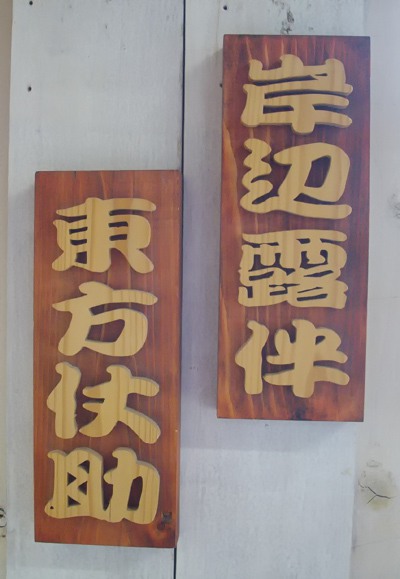 岸辺露伴
東方仗助